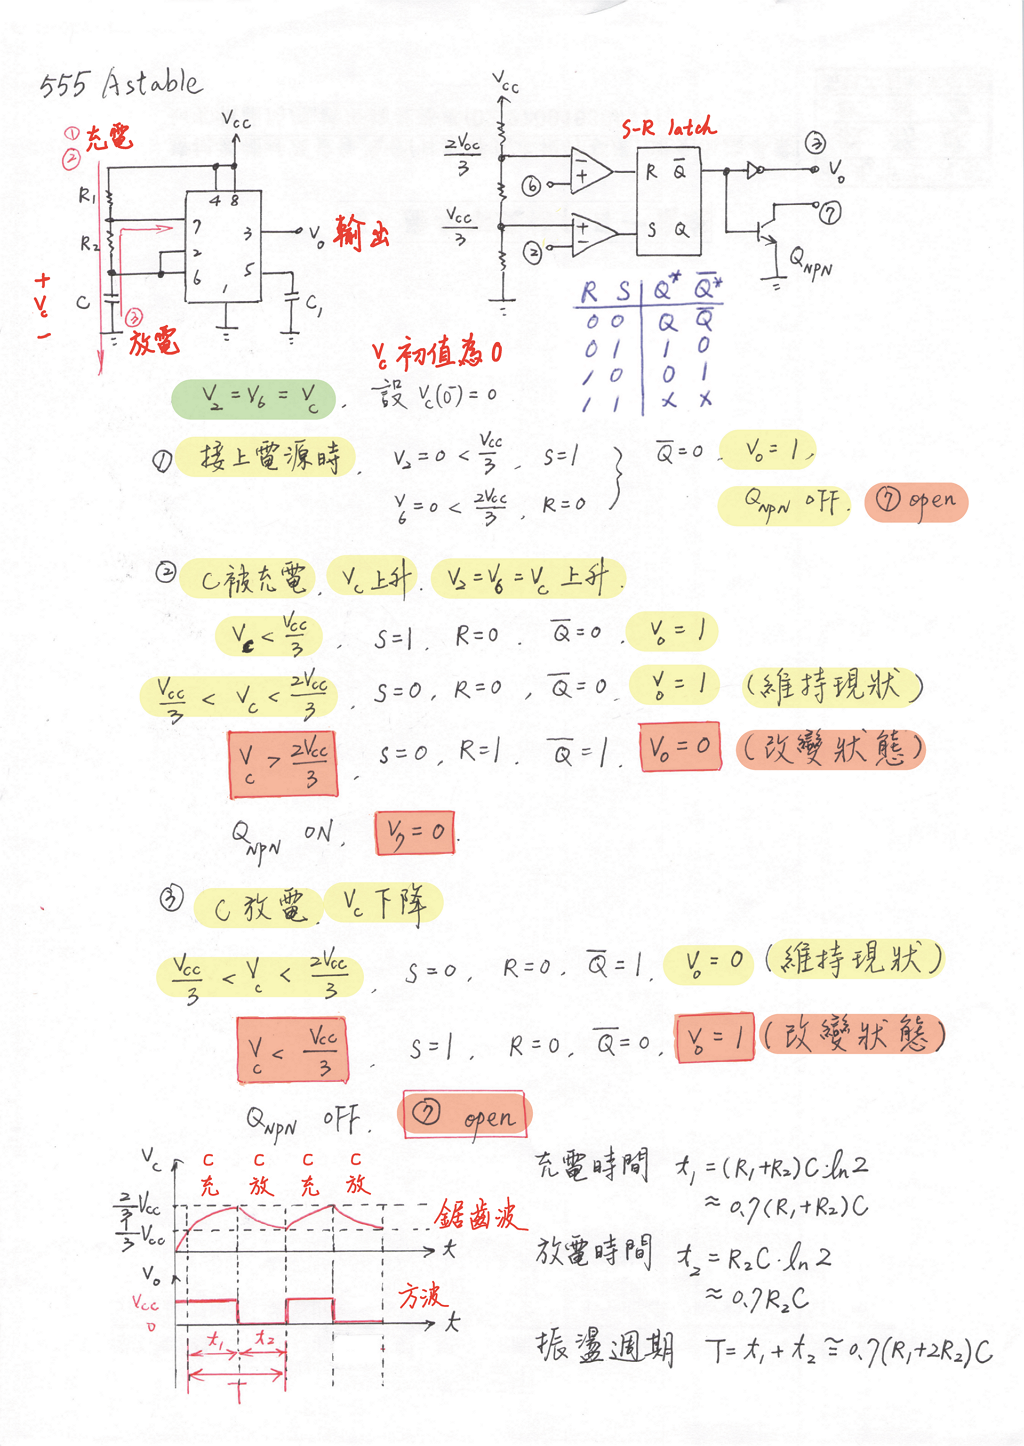 555 Astable
① 充電
②
Vcc
R₁
R₂
4 8
7
2
6
3
5
1
V₀ 輸出
+
Vc
−
C
C₁
③
放電
Vcc
2Vcc/3
Vcc/3
⑥
②
−
+
+
−
S-R latch
R Q̅
S Q
③
V₀
⑦
Q_NPN
R S Q* Q̅*
0 0 Q Q̅
0 1 1 0
1 0 0 1
1 1 x x
Vc 初值為0
V₂=V₆=Vc, 設 Vc(0⁻)=0
① 接上電源時, V₂=0<Vcc/3, S=1 } Q̅=0, V₀=1,
V₆=0<2Vcc/3, R=0 Q_NPN OFF. ⑦ open
② C被充電, Vc上升. V₂=V₆=Vc 上升.
Vc<Vcc/3, S=1, R=0, Q̅=0, V₀=1
Vcc/3<Vc<2Vcc/3, S=0, R=0, Q̅=0, V₀=1 (維持現狀)
Vc>2Vcc/3, S=0, R=1, Q̅=1, V₀=0 (改變狀態)
Q_NPN ON, V₇=0.
③ C放電, Vc下降
Vcc/3<Vc<2Vcc/3, S=0, R=0, Q̅=1, V₀=0 (維持現狀)
Vc<Vcc/3, S=1, R=0, Q̅=0, V₀=1 (改變狀態)
Q_NPN OFF. ⑦ open
Vc
C C C C
充 放 充 放
2/3 Vcc
1/3 Vcc
鋸齒波
t
V₀
Vcc
0
方波
t
t₁ t₂
T
充電時間 t₁=(R₁+R₂)C·ln2
≈0.7(R₁+R₂)C
放電時間 t₂=R₂C·ln2
≈0.7R₂C
振盪週期 T=t₁+t₂≅0.7(R₁+2R₂)C